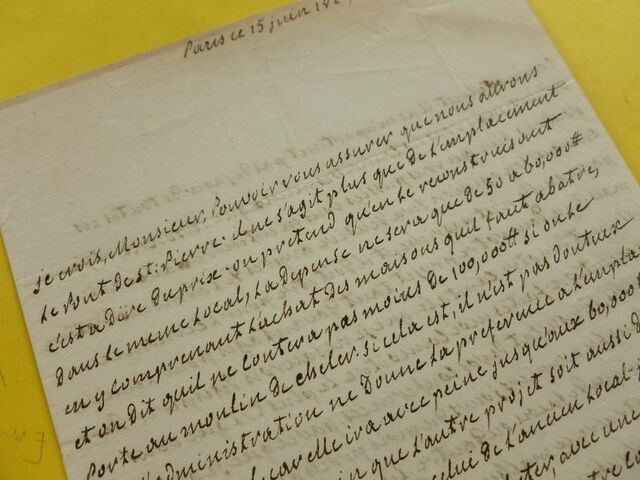 Paris ce 15 juin 182
je crois, Monsieur, Pouvoir vous assurer que nous aurons
le Pont de st. Pierre. il ne s'agit plus que de l'emplacement
c'est a dire du prix. on pretend qu'en le reconstruisant
dans le meme Local, La Depense ne sera que de 50 a 60,000tt
en y comprenant L'achat des maisons qu'il faut abatre,
et on dit qu'il ne contera pas moins de 100,000tt si on le
Porte au moulin de si cela est, il n'est pas douteux
administration ne Donne La preference a L'empla
car elle ira avec peine jusqu'aux 60,000tt
que L'autre projet soit aussi d
celui de L'ancien Local
avec une